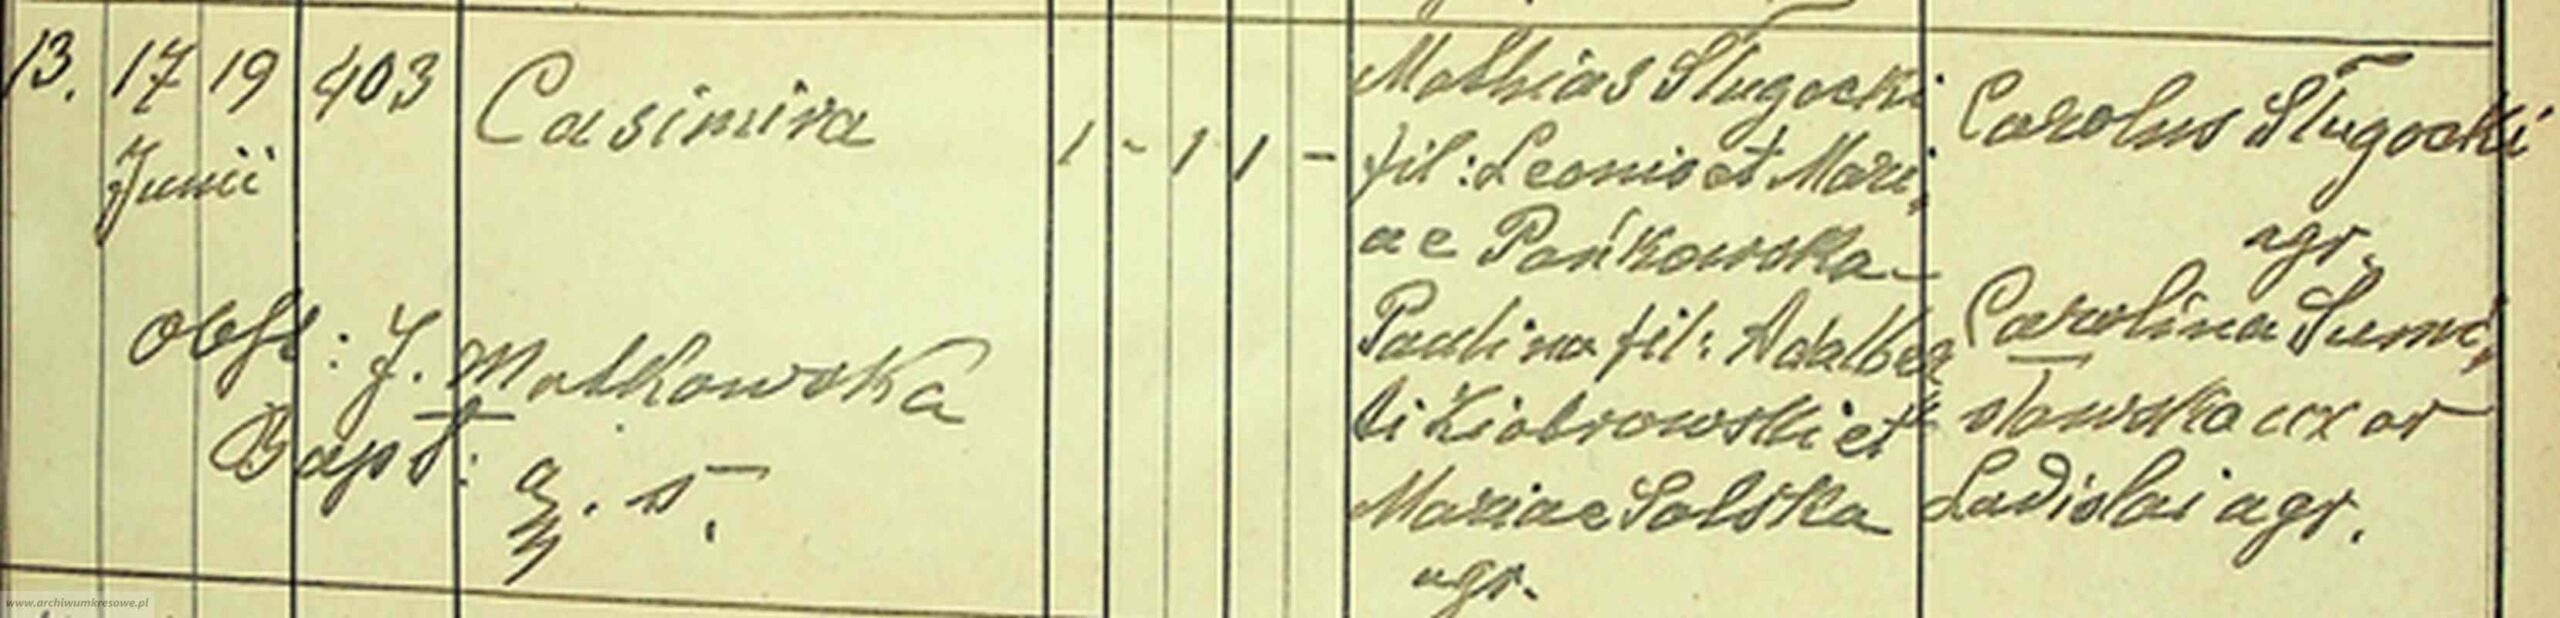 13. 17 19 403 Casimira 1 - 1 1 -
Junii
Obst: J. Matkowska
Bapt:
Mathias Sługocki
fil: Leonis et Mari,
ae Pańkowska
Paulina fil: Adalber
ti Ziobrowski et
Mariae Solska
agr.
Carolus Sługocki
agr.
Carolina Sumi,
sławska uxor
Ladislai agr.
www.archiwumkresowe.pl